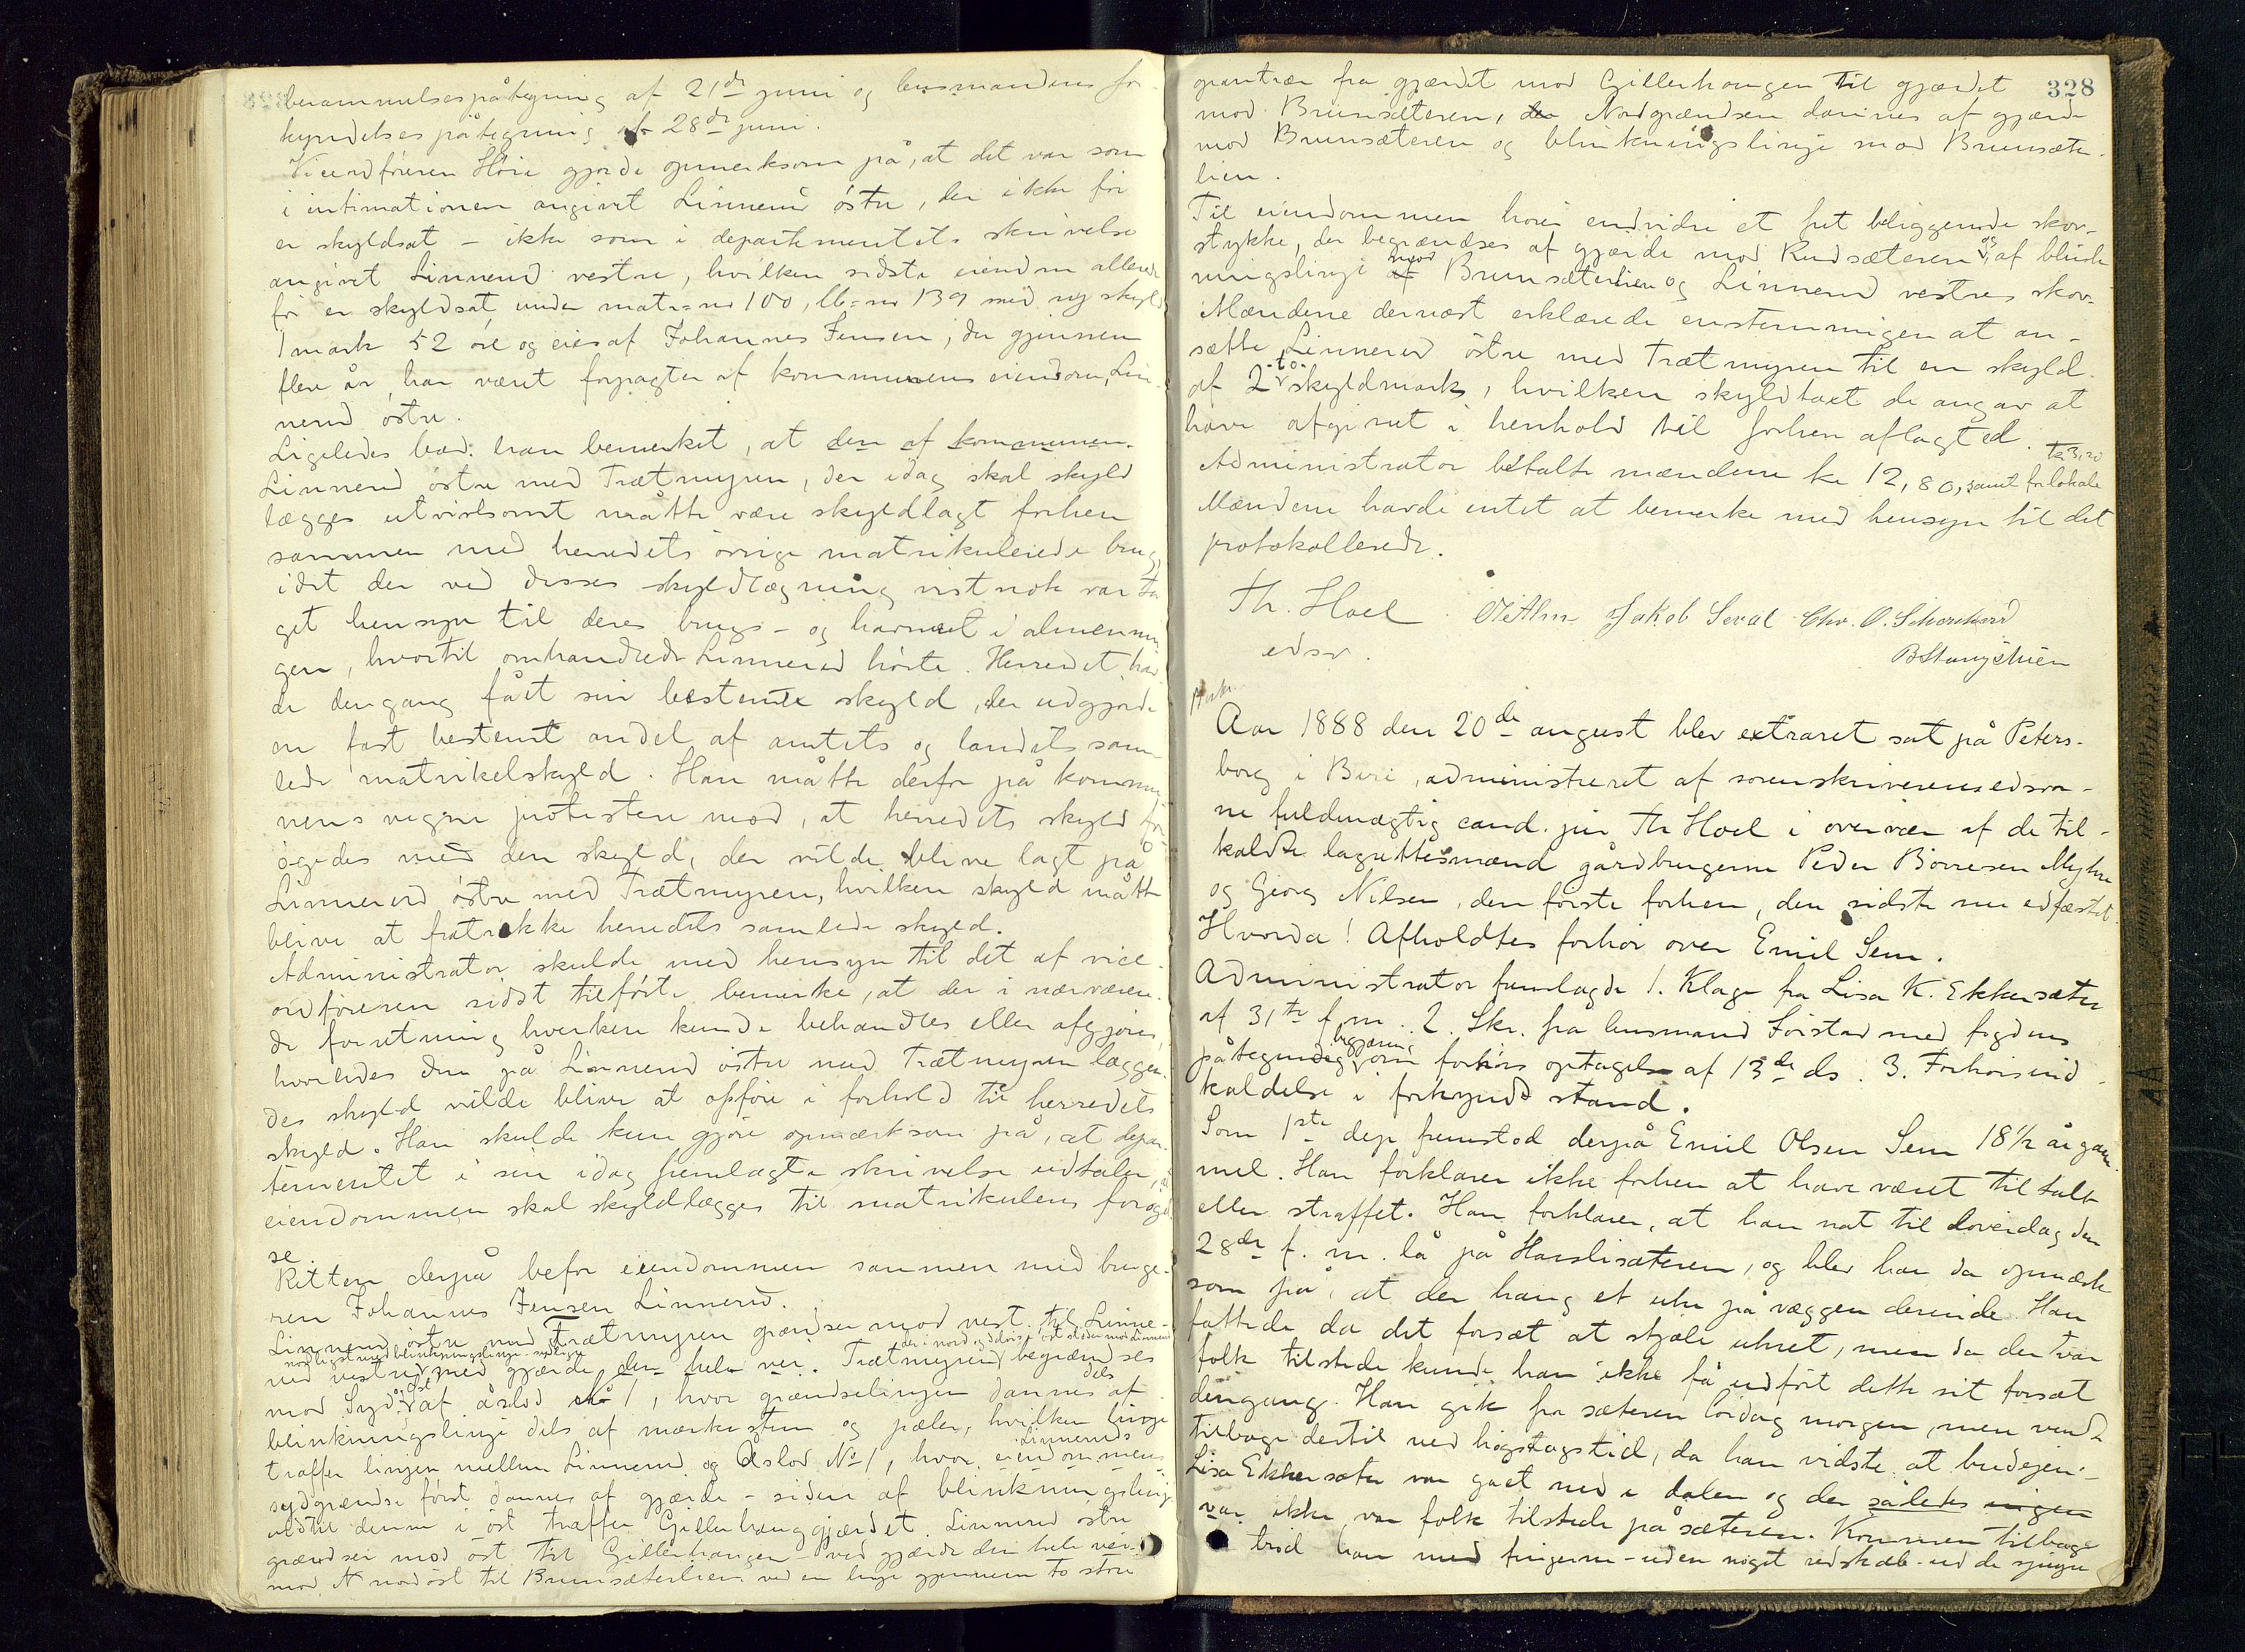 berammelsespåtegning af 21de juni og lensmandens for-
kyndelsespåtegning af 28de juni.
Viceordføreren Høie gjorde opmerksom på, at det var som
i intimationen angivet Linnerud østre, der ikke før
er skyldsat – ikke som i departementets skrivelse
angivet Linnerud vestre, hvilken sidste eiendom allerede
før er skyldsat under matr-no 100, lb-no 139 med ny skyld
1 mark 52 øre og eies af Johannes Jensen, der gjennem
flere år har været forpagter af kommunens eiendom, Lin-
nerud østre.
Ligeledes bad han bemerket, at den af kommunen
Linnerud østre med Trætmyren, der idag skal skyld
lægges utvivlsomt måtte være skyldlagt forhen
sammen med herredets øvrige matrikulerede brug
idet der ved disses skyldlægning vistnok var ta
get hensyn til deres brugs- og havneret i almennin
gen, hvortil omhandlede Linnerud hørte. Herredet hav
de dengang fået sin bestemte skyld, der udgjorde
en fast bestemt andel af amtets og landets sam
lede matrikelskyld. Han måtte derfor på kommu
nens vegne protestere mod, at herredets skyld for
øgedes med den skyld, der vilde blive lagt på
Linnerud østre med Trætmyren, hvilken skyld måtte
blive at fratrekke herredets samlede skyld.
Administrator skulde med hensyn til det af vice-
ordføreren sidst tilførte bemerke, at der i nærværen-
de forretning hverken kunde behandles eller afgjøres,
hvorledes den på Linnerud østre med Trætmyren læggen-
des skyld vilde blive at opføre i forhold til herredets
skyld. Han skulde kun gjøre opmærksom på, at depar-
tementet i sin idag fremlagte skrivelse udtaler, at
eiendommen skal skyldlægges til matrikulens forøgel
se.
Retten derpå befor eiendommen sammen med bruge-
ren Johannes Jensen Linnerud.
Linnerud østre med Trætmyren grændser mod vest til Linne-
nordligst med blinkningslinje – sydligst der i nord og delvis i øst støder mod Linnerud
rud vestre med gjærde den hele vei. Trætmyren begrændses
mod Syd og Øst af åslød no 1, hvor grændselinjen dannes dels af
blinkningslinje dels af merkestene og pæler, hvilken linje
træffer linjen mellem Linnerud og Åslød No 1, hvor Linneruds eiendommens
sydgrændse først dannes af gjærde – siden af blinkningslinje
indtil denne i øst træffer Gillerhauggjærdet. Linnerud østre
grændser mod øst til Gillerhaugen – ved gjærde den hele vei –
mod N nordøst til Brunsæterlien ved en linje gjennem to store
328
grantrær fra gjærdet mod Gillerhaugen til gjærdet
mod Brunsæteren, der Nordgrændsen dannes af gjærde
mod Brunsæteren og blinkningslinje mod Brunsæter-
lien.
Til eiendommen hører endvidere et frit beliggende skov-
stykke, der begrændses af gjærde mod Rudsæteren og af blink
ningslinje af mod Brunsæterlien og Linnerud vestres skov.
Mændene dernæst erklærede enstemmigen at an-
sætte Linnerud østre med Trætmyren til en skyld
af 2 -to- skyldmark, hvilken skyldtaxt de angav at
have afgivet i henhold til forhen aflagt ed.
Administrator betalte mændene kr 12,80, samt for lokale kr 3,20
Mændene havde intet at bemerke med hensyn til det
protokollerede.
Th. Hoel
edsv.
Jakob Seval Chr. O.
Aar 1888 den 20de august blev extraret sat på Peters-
borg i Biri, administreret af sorenskriverens edsvor-
ne fuldmægtig cand. jur Th Hoel i overvær af de til-
kaldte lagrettesmænd gårdbrugerne Peder Børresen Myhre
og Georg Nilsen, den første forhen, den sidste nu edfæstet.
Hvorda! Afholdtes forhør over Emil Sem.
Administrator fremlagde 1. Klage fra Lisa K. Ekkersæter
af 31te f. m. 2. Skr. fra lensmand Sørstad med fogdens
påtegnede begjæring om forhørs optagelse af 13de ds. 3. Forhørsind-
kaldelse i forkyndt stand.
Som 1ste dep fremstod derpå Emil Olsen Sem 18½ år gam-
mel. Han forklarer ikke forhen at have været tiltalt
eller straffet. Han forklarer, at han nat til løverdag den
28de f. m. lå på Havslisæteren, og blev han da opmærk
som på, at der hang et uhr på væggen derinde. Han
fattede da det forsæt at stjæle uhret, men da der var
folk tilstede kunde han ikke få udført dette sit forsæt
dengang. Han gik fra sæteren lørdag morgen, men vendte
tilbage dertil ved høgstdagstid, da han vidste at budeien
Lisa Ekkersæter var gået ned i dalen og der således ingen
var ikke var folk tilstede på sæteren. Kommen tilbage
brød han med fingerne – uden noget redskab – ud de spiger